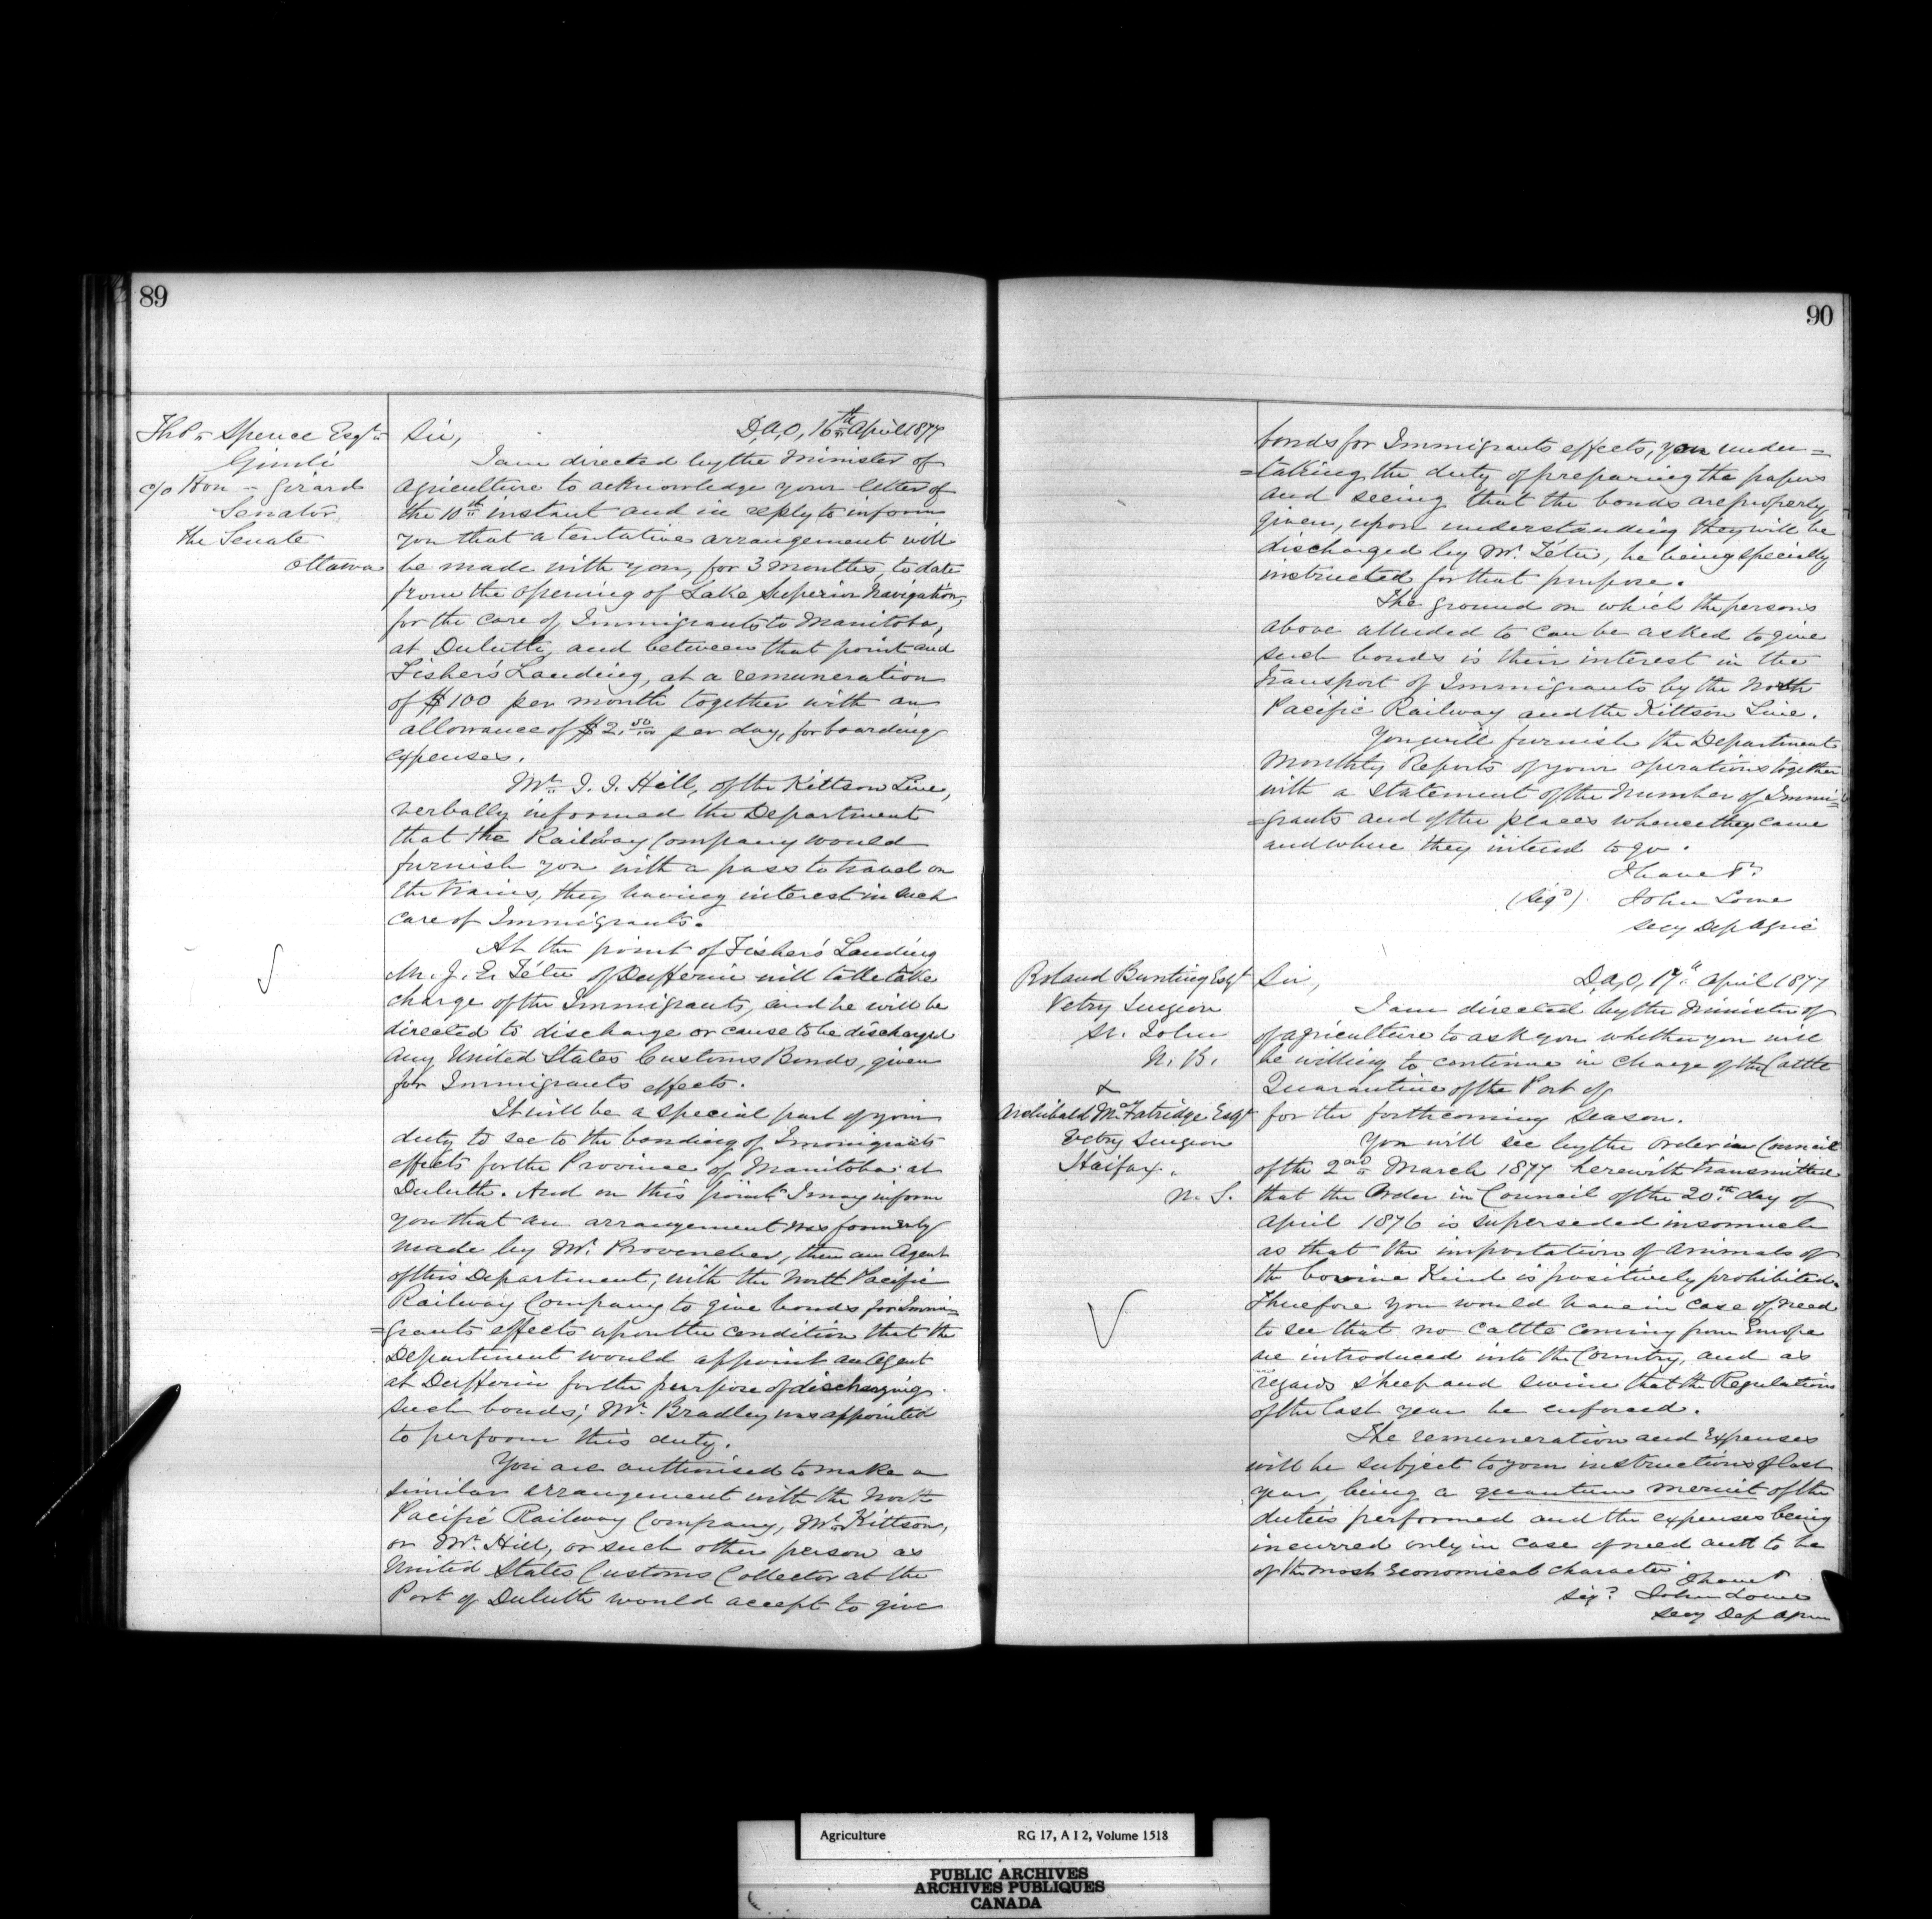 89
Thos. Spence Esqre
Gimli
c/o Hon - Girard
Senator
The Senate
Ottawa
Sir, D,A,O, 16th April 1877
I am directed by the Minister of
Agriculture to acknowledge your letter of
the 10th instant and in reply to inform
you that a tentative arrangement will
be made with you, for 3 months, to date
from the opening of Lake Superior Navigation,
for the care of Immigrants to Manitoba,
at Duluth, and between that point and
Fisher's Landing, at a remuneration
of $100 per month together with an
allowance of $2.50/100 per day, for boarding
expenses.
Mr. J. J. Hill, of the Kittson Line,
verbally informed the Department
that the Railway Company would
furnish you with a pass to travel on
the trains, they having interest in such
care of Immigrants.
At the point of Fisher's Landing
Mr. J. E. Tétu of Dufferin will take
charge of the Immigrants, and he will be
directed to discharge or cause to be discharged
any United States Customs Bonds, given
for Immigrants effects.
It will be a special part of your
duty to see to the bonding of Immigrants
effects for the Province of Manitoba at
Duluth. And on this point I may inform
you that an arrangement was formerly
made by Mr. Provencher, then an Agent
of this Department, with the North Pacific
Railway Company to give bonds for Immi=
=grants effects upon the condition that the
Department would appoint an Agent
at Dufferin for the purpose of discharging
such bonds; Mr. Bradley was appointed
to perform this duty.
You are authorised to make a
similar arrangement with the North
Pacific Railway Company, Mr. Kittson,
or Mr. Hill, or such other person as
United States Customs Collector at the
Port of Duluth would accept to give
90
bonds for Immigrants effects, you under=
=taking the duty of preparing the papers
and seeing that the bonds are properly
given, upon understanding they will be
discharged by Mr. Tétu, he being specially
instructed for that purpose.
The ground on which the persons
above alluded to can be asked to give
such bonds is their interest in the
transport of Immigrants by the North
Pacific Railway and the Kittson Line.
You will furnish the Department
Monthly Reports of your operations together
with a Statement of the Number of Immi=
=grants and of the places whence they came
and where they intend to go.
I have &c
(Sigd) John Lowe
Secy Dep Agric
Roland Bunting Esqr
Vetry Surgeon
St. John
N. B.
&
Archibald McFatridge Esqr
Vetry Surgeon
Halifax.
N. S.
Sir, D,A,O, 17th April 1877
I am directed by the Minister of
of Agriculture to ask you whether you will
be willing to continue in charge of the Cattle
Quarantine of the Port of
for the forthcoming season.
You will see by the Order in Council
of the 2nd March 1877 herewith transmitted
that the Order in Council of the 20th day of
April 1876 is superseded insomuch
as that the importation of animals of
the bovine Kind is positively prohibited.
Therefore you would have in case of need
to see that no cattle coming from Europe
are introduced into the Country, and as
regards sheep and swine that the Regulations
of the last year be enforced.
The remuneration and Expenses
will be subject to your instructions of last
year, being a quantum meruit of the
duties performed and the expenses being
incurred only in case of need and to be
of the most Economical character
I have &
Sigd John Lowe
Secy Dep Agri
Agriculture RG 17, A I 2, Volume 1518
PUBLIC ARCHIVES
ARCHIVES PUBLIQUES
CANADA